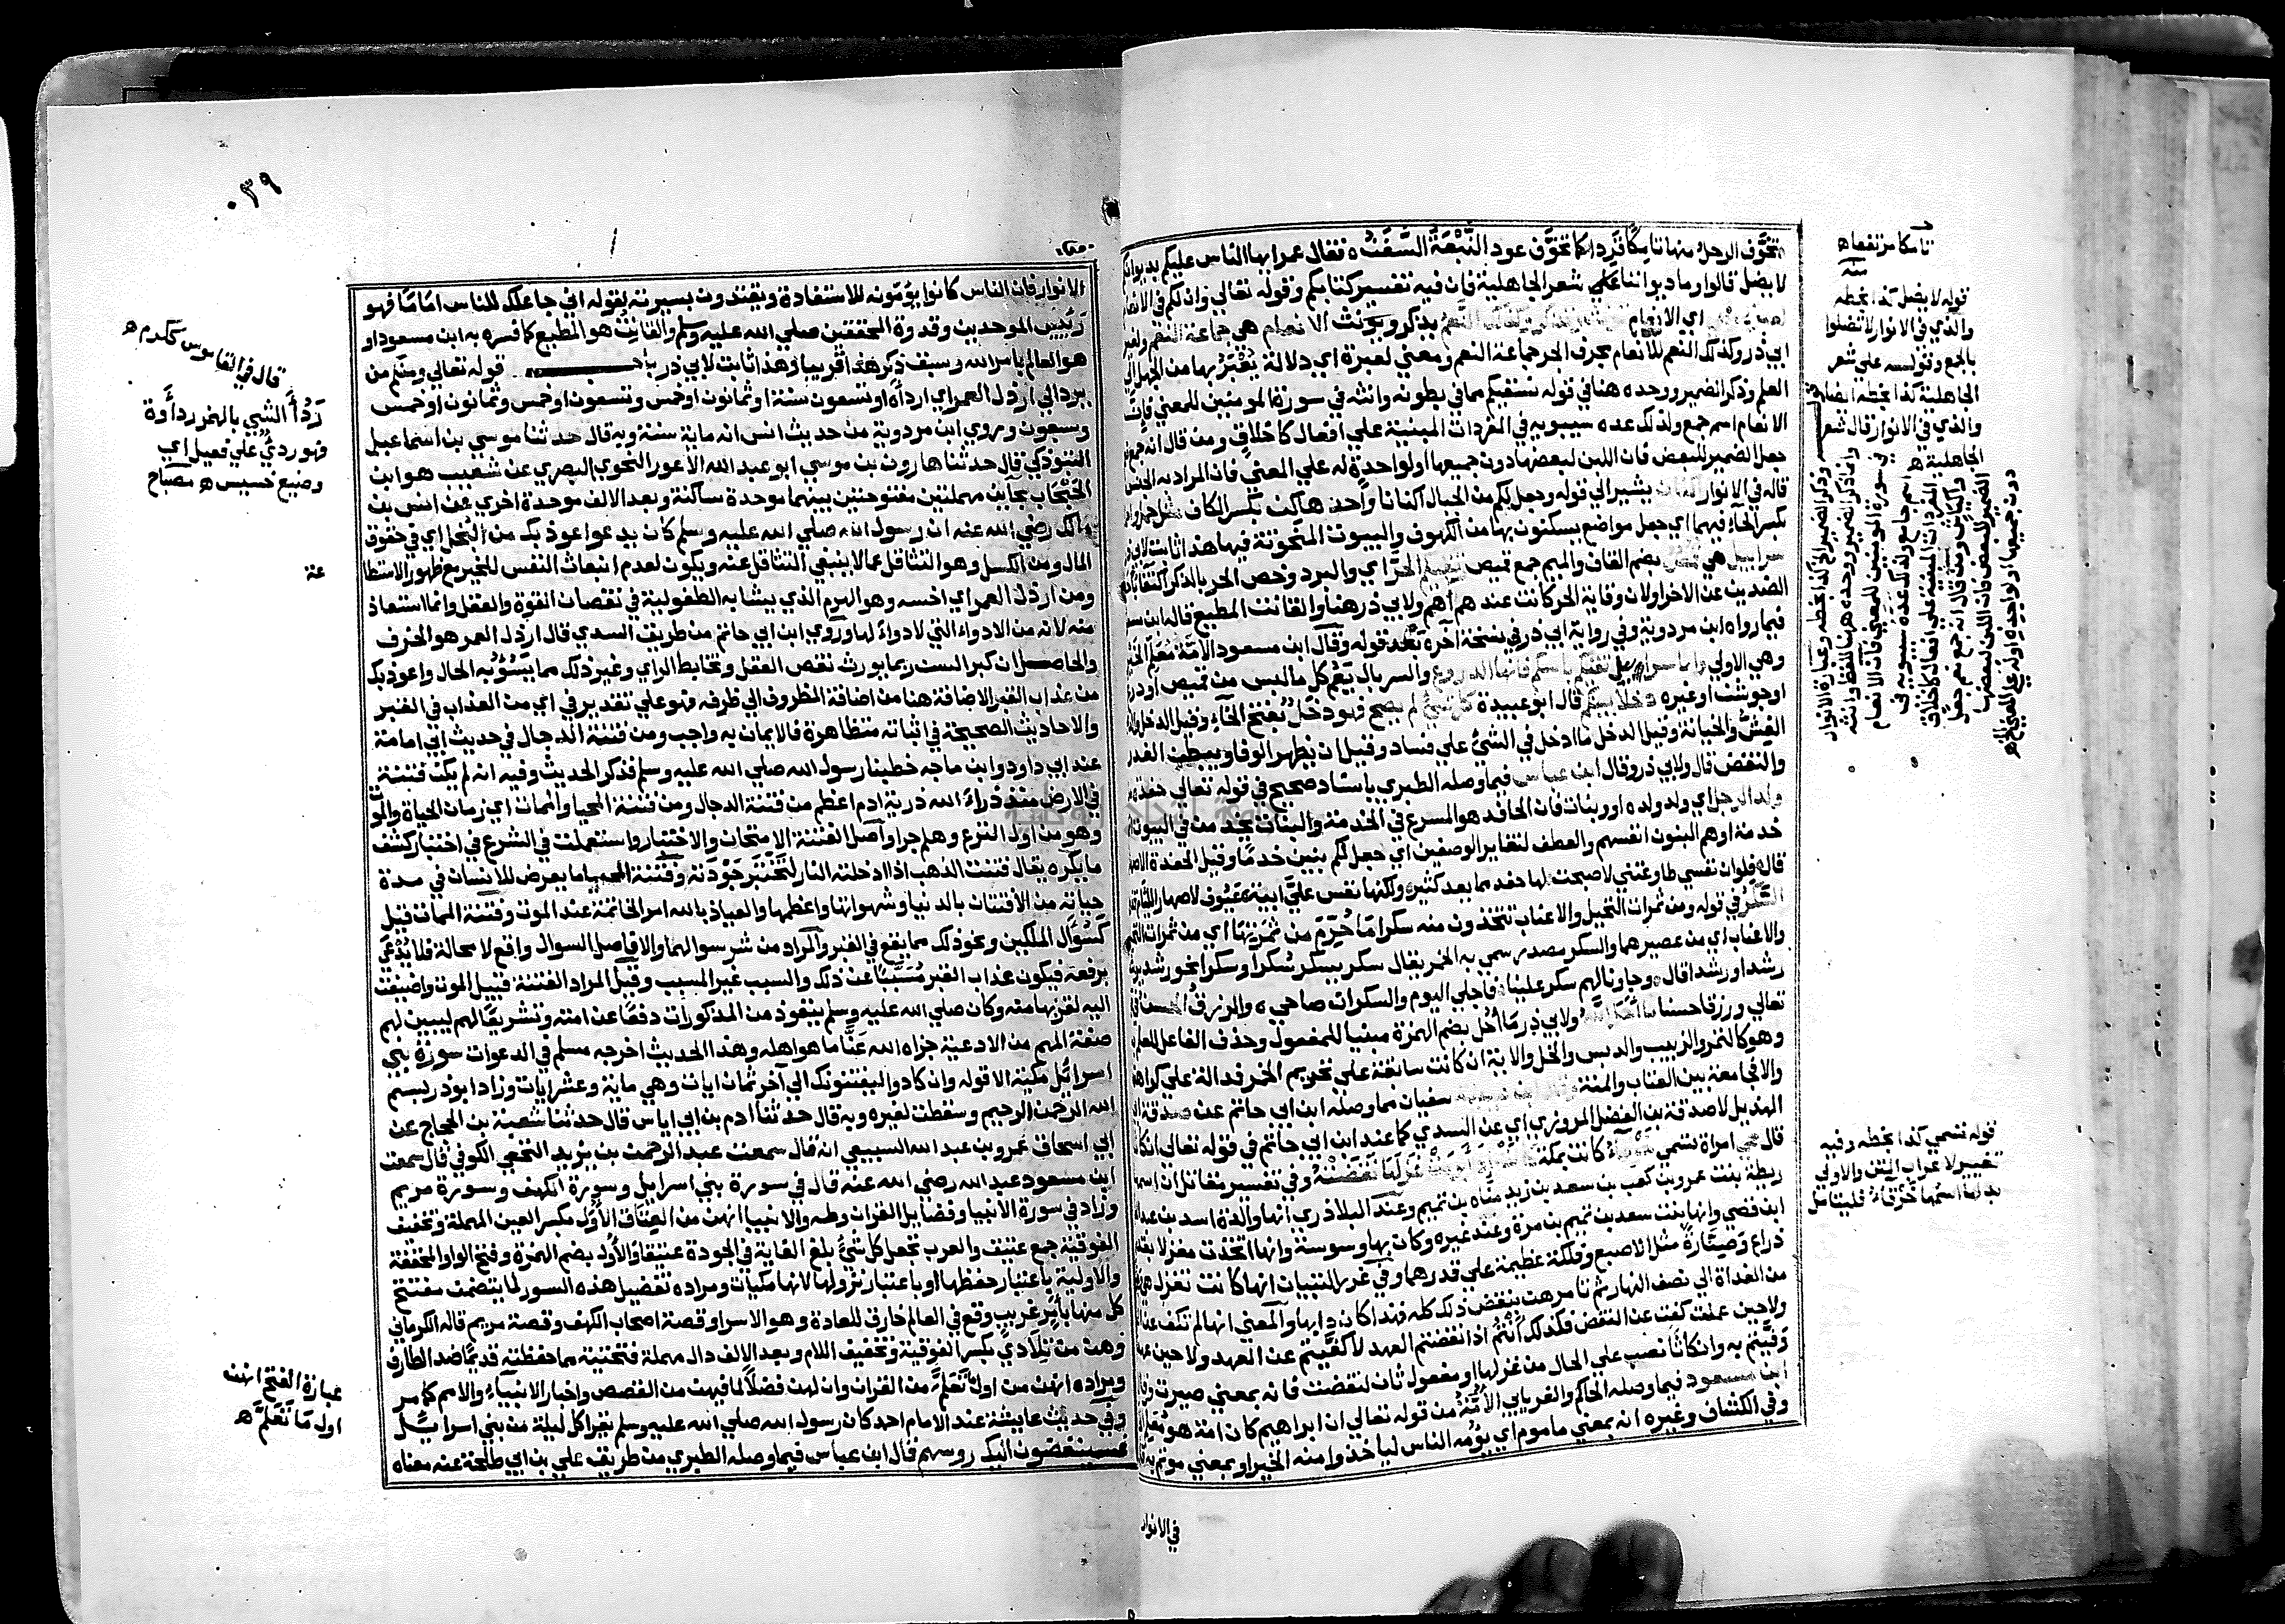 تخوّف الرحل منها تامكا قردا كما تخوّف عود النبعة السفن ه فقال عمر ايها الناس عليكم بديوانكم
لا يضل قالوا وما ديواننا قال شعر الجاهلية فان فيه تفسير كتابكم وقوله تعالي وان لكم في الانعام
اي الانعام يذكر ويونث الانعام هي جماعة النعم ولغير
ابي ذر وكذلك النعم للانعام بحرف الجر جماعة النعم ومعني لعبرة اي دلالة يعتبر بها من الجهل الي
العلم وذكر الضمير ووحده هنا في قوله نسقيكم مما في بطونه وانثه في سورة المومنين للمعني فان
الانعام اسم جمع ولذلك عده سيبويه في المفردات المبنية علي افعال كاخلاق ومن قال انه جمع نعم
جعل الضمير للبعض فان اللبن لبعضها دون جميعها او لواحدة او له علي المعني فان المراد به الجنس
قاله في الانوار يشير الي قوله وجعل لكم من الجبال اكنانا واحدها كن بكسر الكاف مثل حمل واحمال
بكسر الحاء فيهما اي جعل مواضع يسكنون بها من الكهوف والبيوت المنحوتة فيها هذا ثابت لابي ذر
سرابيل هي قمص بضم القاف والميم جمع قميص تقيكم الحر اي والبرد وخص الحر بالذكر اكتفاء باحد
الضدين عن الاخر او لان وقاية الحر كانت عندهم اهم ولابي ذر هنا والقانت المطيع قاله ابن مسعود
فيما رواه ابن مردوية وفي رواية ابي ذر في نسخة آخره بعد قوله وقال ابن مسعود الامة معلم الخير
وهي الاولي واما سرابيل تقيكم باسكم فانها الدروع والسربال يعم كل ما لبس من قميص او درع
او جوشن او غيره دخلا بينكم قال ابو عبيدة كل شي لم يصح فهو دخل بفتح الخاء وقيل الدخل والدغل
الغش والخيانة وقيل الدخل ما ادخل في الشي علي فساد وقيل ان يظهر الوفا ويبطن الغدر
والنقض قال ولابي ذر وقال ابن عباس فيما وصله الطبري باسناد صحيح في قوله تعالي حفدة من
ولد الرجل اي ولد ولده او ربنات فان الحافد هو المسرع في الخدمة والبنات يخدمن في البيوت اتم
خدمة او هم البنون انفسهم والعطف لتغاير الوصفين اي جعل لكم بنين خدما وقيل الحفدة الاصهار
قال ه فلو ان نفسي طاوعتني لاصبحت لها حفد مما يعد كثير ه ولكنها نفس علي ابية عيوف لاصهار اللئام
السكر في قوله ومن ثمرات النخيل والاعناب تتخذون منه سكرا ما حرم من ثمرتها اي من ثمرات النخيل
والاعناب اي من عصيرهما والسكر مصدر سمي به الخمر يقال سكر يسكر سكرا وسكرا نحو رشد يرشد
رشدا ورشدا قال ه وجاونا لهم سكر علينا ه فاجلي اليوم والسكران صاحي ه والرزق الحسن في قوله
تعالي ورزقا حسنا ما احل الله ولابي ذر ما احل بضم الهمزة مبنيا للمفعول وحذف الفاعل للعلم به
وهو كالتمر والزبيب والدبس والخل والاية ان كانت سابقة علي تحريم الخمر فدالة علي كراهتها
والا فجامعة بين العتاب والمنة وقال ابن عيينة سفيان مما وصله ابن ابي حاتم عن صدقة ابي
الهذيل لا صدقة بن الفضل المروزي اي عن السدي كما عند ابن ابي حاتم في قوله تعالي انكاثا
قال هي امراة تسمي خرقاء كانت بمكة كانت اذا ابرمت غزلها نقضته وفي تفسير مقاتل ان اسمها
ريطة بنت عمرو بن كعب بن سعد بن زيد مناه بن تميم وعند البلاذري انها والدة اسد بن عبد العزي
ابن قصي وانها بنت سعد بن تميم بن مرة وعند غيره وكان بها وسوسة وانها اتخذت مغزلا بقدر
ذراع وصنارة مثل الاصبع وفلكة عظيمة علي قدرهما وفي غرر التبيان انها كانت تغزل هي وجواريها
من الغداة الي نصف النهار ثم تامرهن بنقض ذلك كله فهذا كان دابها والمعني انها لم تكف عن العمل
ولا حين عملت كفت عن النقض فكذلك انتم اذا نقضتم العهد لا كففتم عن العهد ولا حين عهدتم
وفيتم به وانكاثا نصب علي الحال من غزلها او مفعول ثان لنقضت فانه بمعني صيرت وقال
ابن مسعود فيما وصله الحاكم والفريابي الامة من قوله تعالي ان ابراهيم كان امة هو معلم الخير
وفي الكشاف وغيره انه بمعني ماموم اي يؤمه الناس لياخذوا منه الخير او بمعني موتم به قال
في الانوار
تامكا مرتفعا ه
منه
قوله لا يضل كذا بخطه
والذي في الانوار لا تضلوا
بالجمع وقوله علي شعر
الجاهلية كذا بخطه ايضا
والذي في الانوار قال شعر
الجاهلية ه
وذكر الضمير الخ كذا بخطه وعبارة الانوار
وانما ذكر الضمير ووحده هنا للفظ وانثه
في سورة المومنين للمعني فان الانعام
اسم جامع ولذلك عده سيبويه في
المفردات المبنية علي افعال كاخلاق
واكياش ومن قال انه جمع نعم جعل
الضمير للبعض فان اللبن لبعضها
دون جميعها او لواحده او له علي المعني الخ ه
قوله تسمي كذا بخطه وفيه
تغيير لاعراب المتن والاولي
بدلها اسمها خرقاء فليتامل
٠٣٩
الانوار فان الناس كانوا يؤمونه للاستفادة ويقتدون بسيرته لقوله اني جاعلك للناس اماما فهو
رئيس الموحدين وقدوة المحققين صلي الله عليه وسلم والقانت هو المطيع كما فسره به ابن مسعود او
هو العالم بامر الله وسبق ذكر هذا قريبا وهذا ثابت لابي ذر باب قوله تعالي ومنكم من
يرد الي ارذل العمر اي ارداه او تسعون سنة او ثمانون او خمس وتسعون او خمس وثمانون او خمس
وسبعون وروي ابن مردوية من حديث انس انه ماية سنة وبه قال حدثنا موسي بن اسماعيل
التبوذكي قال حدثنا هارون بن موسي ابو عبد الله الاعور النحوي البصري عن شعيب هو ابن
الحبحاب بحائين مهملتين مفتوحتين بينهما موحدة ساكنة وبعد الالف موحدة اخري عن انس بن
مالك رضي الله عنه ان رسول الله صلي الله عليه وسلم كان يدعو اعوذ بك من البخل اي في حقوق
المال ومن الكسل وهو التثاقل عما لا ينبغي التثاقل عنه ويكون لعدم انبعاث النفس للخير مع ظهور الاستطا
ومن ارذل العمر اي اخسه وهو الهرم الذي يشابه الطفولية في نقصان القوة والعقل وانما استعاذ
منه لانه من الادواء التي لا دواء لها وروي ابن ابي حاتم من طريق السدي قال ارذل العمر هو الخرف
والحاصل ان كبر السن ربما يورث نقص العقل وتخابط الراي وغير ذلك مما يسؤ به الحال واعوذ بك
من عذاب القبر الاضافة هنا من اضافة المظروف الي ظرفه فهو علي تقدير في اي من العذاب في القبر
والاحاديث الصحيحة في اثباته متظاهرة فالايمان به واجب ومن فتنة الدجال في حديث ابي امامة
عند ابي داود وابن ماجه خطبنا رسول الله صلي الله عليه وسلم فذكر الحديث وفيه انه لم يكن فتنة
في الارض منذ ذراء الله ذرية ادم اعظم من فتنة الدجال ومن فتنة المحيا والممات اي زمان الحياة والموت
وهو من اول النزع وهلم جرا واصل الفتنة الامتحان والاختبار واستعملت في الشرع في اختبار كشف
ما يكره يقال فتنت الذهب اذا ادخلته النار لتختبر جودته وفتنة المحيا ما يعرض للانسان في مدة
حياته من الافتتان بالدنيا وشهواتها واعظمها والعياذ بالله امر الخاتمة عند الموت وفتنة الممات قيل
كسؤال الملكين ونحو ذلك مما يقع في القبر والمراد من شر سوالهما والا فاصل السوال واقع لا محالة فلا يدعي
برفعه فيكون عذاب القبر مسببا عن ذلك والسبب غير المسبب وقيل المراد الفتنة قبيل الموت واضيفت
اليه لقربها منه وكان صلي الله عليه وسلم يتعوذ من المذكورات دفعا عن امته وتشريعا لهم ليبين لهم
صفة المهم من الادعية جزاه الله عنا ما هو اهله وهذا الحديث اخرجه مسلم في الدعوات سورة بني
اسرائل مكية الا قوله وان كادوا ليفتنونك الي آخر ثمان ايات وهي ماية وعشر ايات وزاد ابو ذر بسم
الله الرحمن الرحيم وسقطت لغيره وبه قال حدثنا ادم بن ابي اياس قال حدثنا شعبة بن الحجاج عن
ابي اسحاق عمرو بن عبد الله السبيعي انه قال سمعت عبد الرحمن بن يزيد النخعي الكوفي قال سمعت
ابن مسعود عبد الله رضي الله عنه قال في سورة بني اسرايل وسورة الكهف وسورة مريم
وزاد في سورة الانبيا وفضايل القران وطه والانبيا انهن من العتاق الاول بكسر العين المهملة وتخفيف
الفوقية جمع عتيق والعرب تجعل كل شئ بلغ الغاية في الجودة عتيقا والاول بضم الهمزة وفتح الواو المخففة
والاولية باعتبار حفظها او باعتبار نزولها لانها مكيات ومراده تفضيل هذه السور لما يتضمن مفتتح
كل منها بامر غريب وقع في العالم خارق للعادة وهو الاسرا وقصة اصحاب الكهف وقصة مريم قاله الكرماني
وهن من تلادي بكسر الفوقية وتخفيف اللام وبعد الالف دال مهملة فتحتية مما حفظته قديما ضد الطارف
ومراده انهن من اول ما تعلم من القران وان لهن فضلا لما فيهن من القصص واخبار الانبياء والامم كما مر
وفي حديث عايشة عند الامام احمد كان رسول الله صلي الله عليه وسلم يقرا كل ليلة من بني اسرايل
فسينغضون اليك روسهم قال ابن عباس فيما وصله الطبري من طريق علي بن ابي طلحة عنه معناه
قال في القاموس ككرم ه
ردأ الشيي بالهمز رداءة
فهو ردئ علي فعيل اي
وضيع خسيس ه مصباح
عة
عبارة الفتح انهن
اول ما تعلم ه